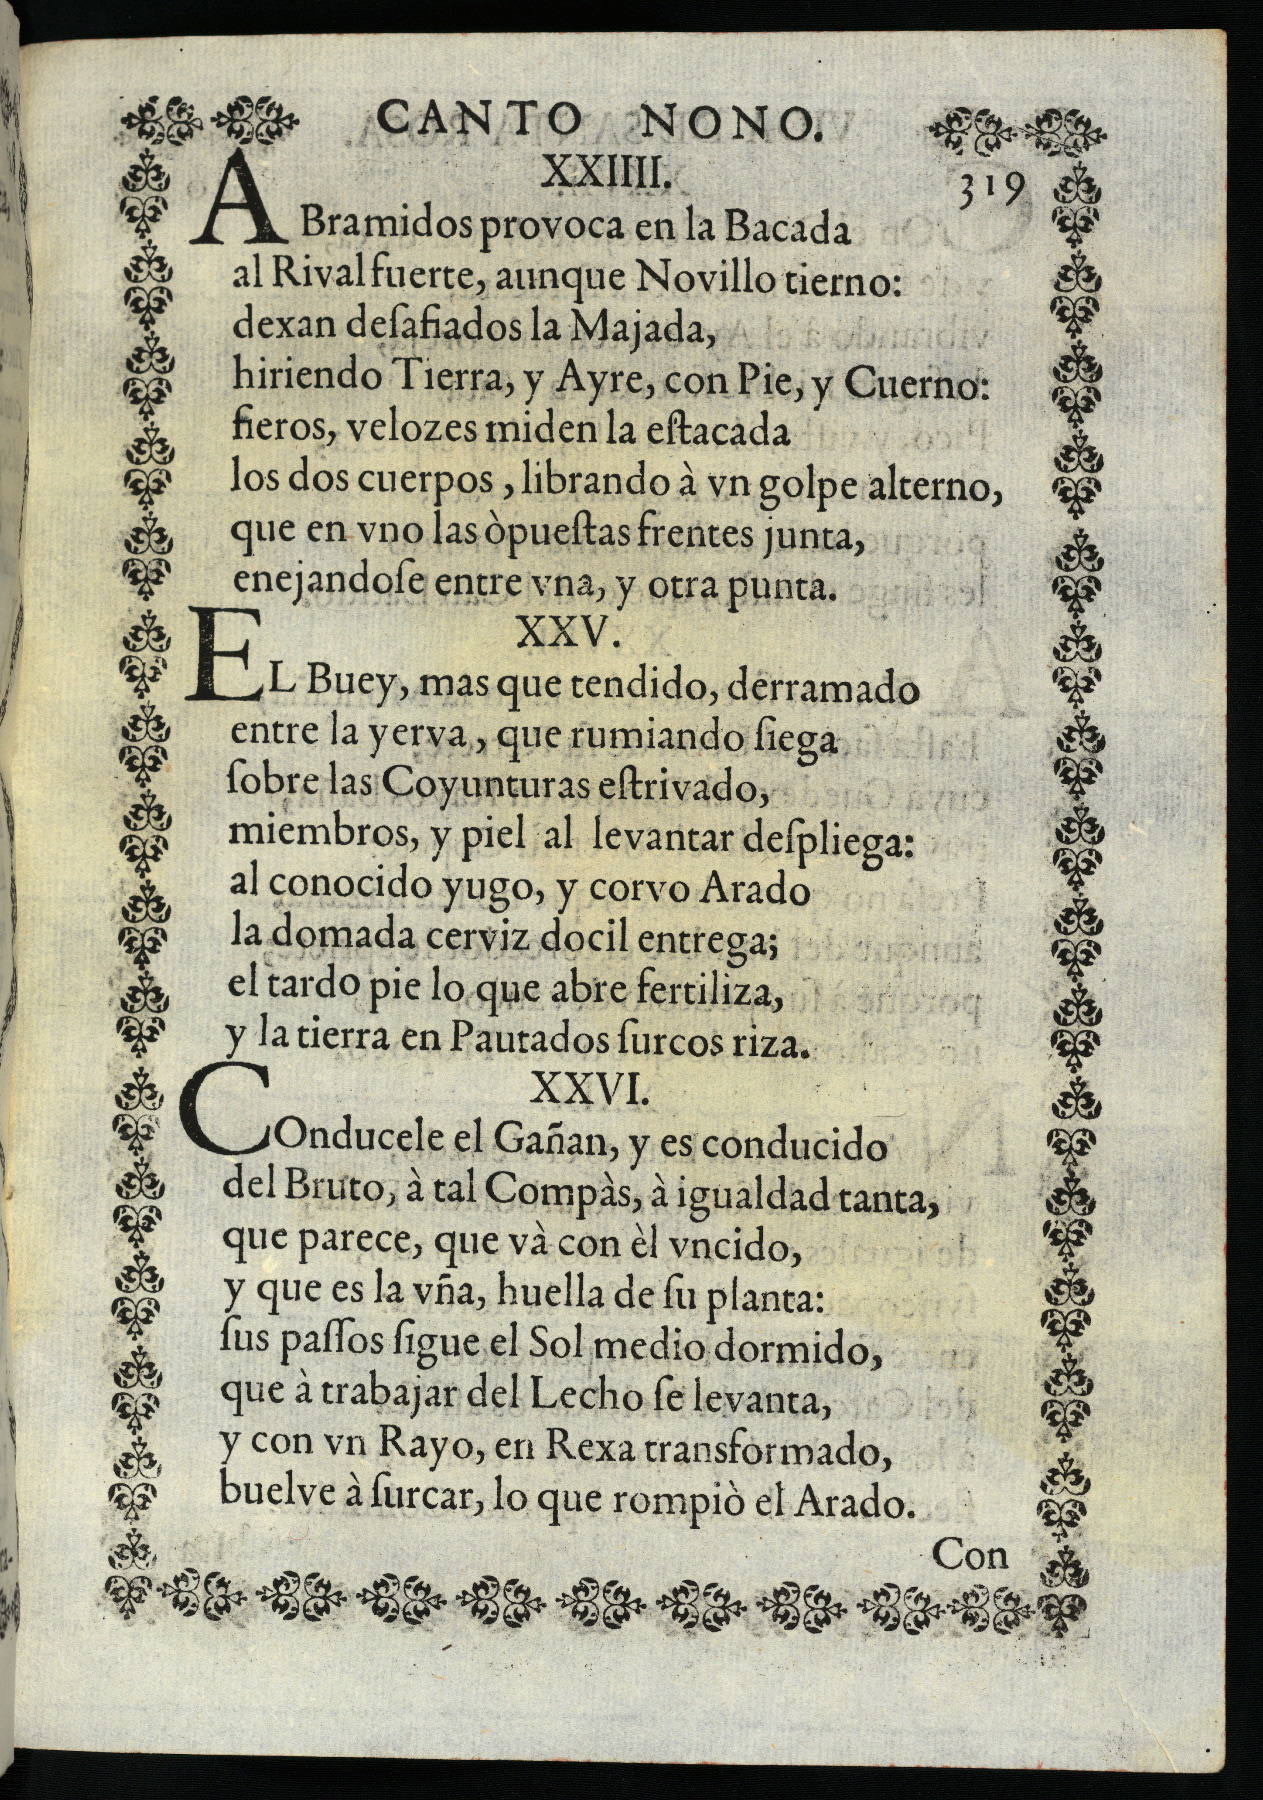 CANTO NONO.
XXIIII.
319
A Bramidos provoca en la Bacada
al Rival fuerte, aunque Novillo tierno:
dexan deſafiados la Majada,
hiriendo Tierra, y Ayre, con Pie, y Cuerno:
fieros, velozes miden la eſtacada
los dos cuerpos, librando à vn golpe alterno,
que en vno las òpueſtas frentes junta,
enejandoſe entre vna, y otra punta.
XXV.
EL Buey, mas que tendido, derramado
entre la yerva, que rumiando ſiega
ſobre las Coyunturas eſtrivado,
miembros, y piel al levantar deſpliega:
al conocido yugo, y corvo Arado
la domada cerviz docil entrega;
el tardo pie lo que abre fertiliza,
y la tierra en Pautados ſurcos riza.
XXVI.
COnducele el Gañan, y es conducido
del Bruto, à tal Compàs, à igualdad tanta,
que parece, que và con èl vncido,
y que es la vña, huella de ſu planta:
ſus paſſos ſigue el Sol medio dormido,
que à trabajar del Lecho ſe levanta,
y con vn Rayo, en Rexa transformado,
buelve à ſurcar, lo que rompiò el Arado.
Con